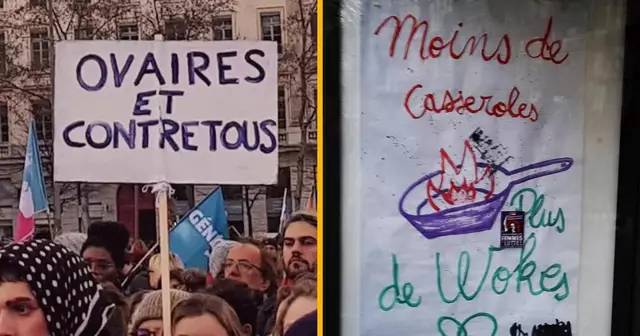 OVAIRES
ET
CONTRETOUS
GÉNÉ
Moins de
Casseroles
Plus
de Wokes
FEMMES